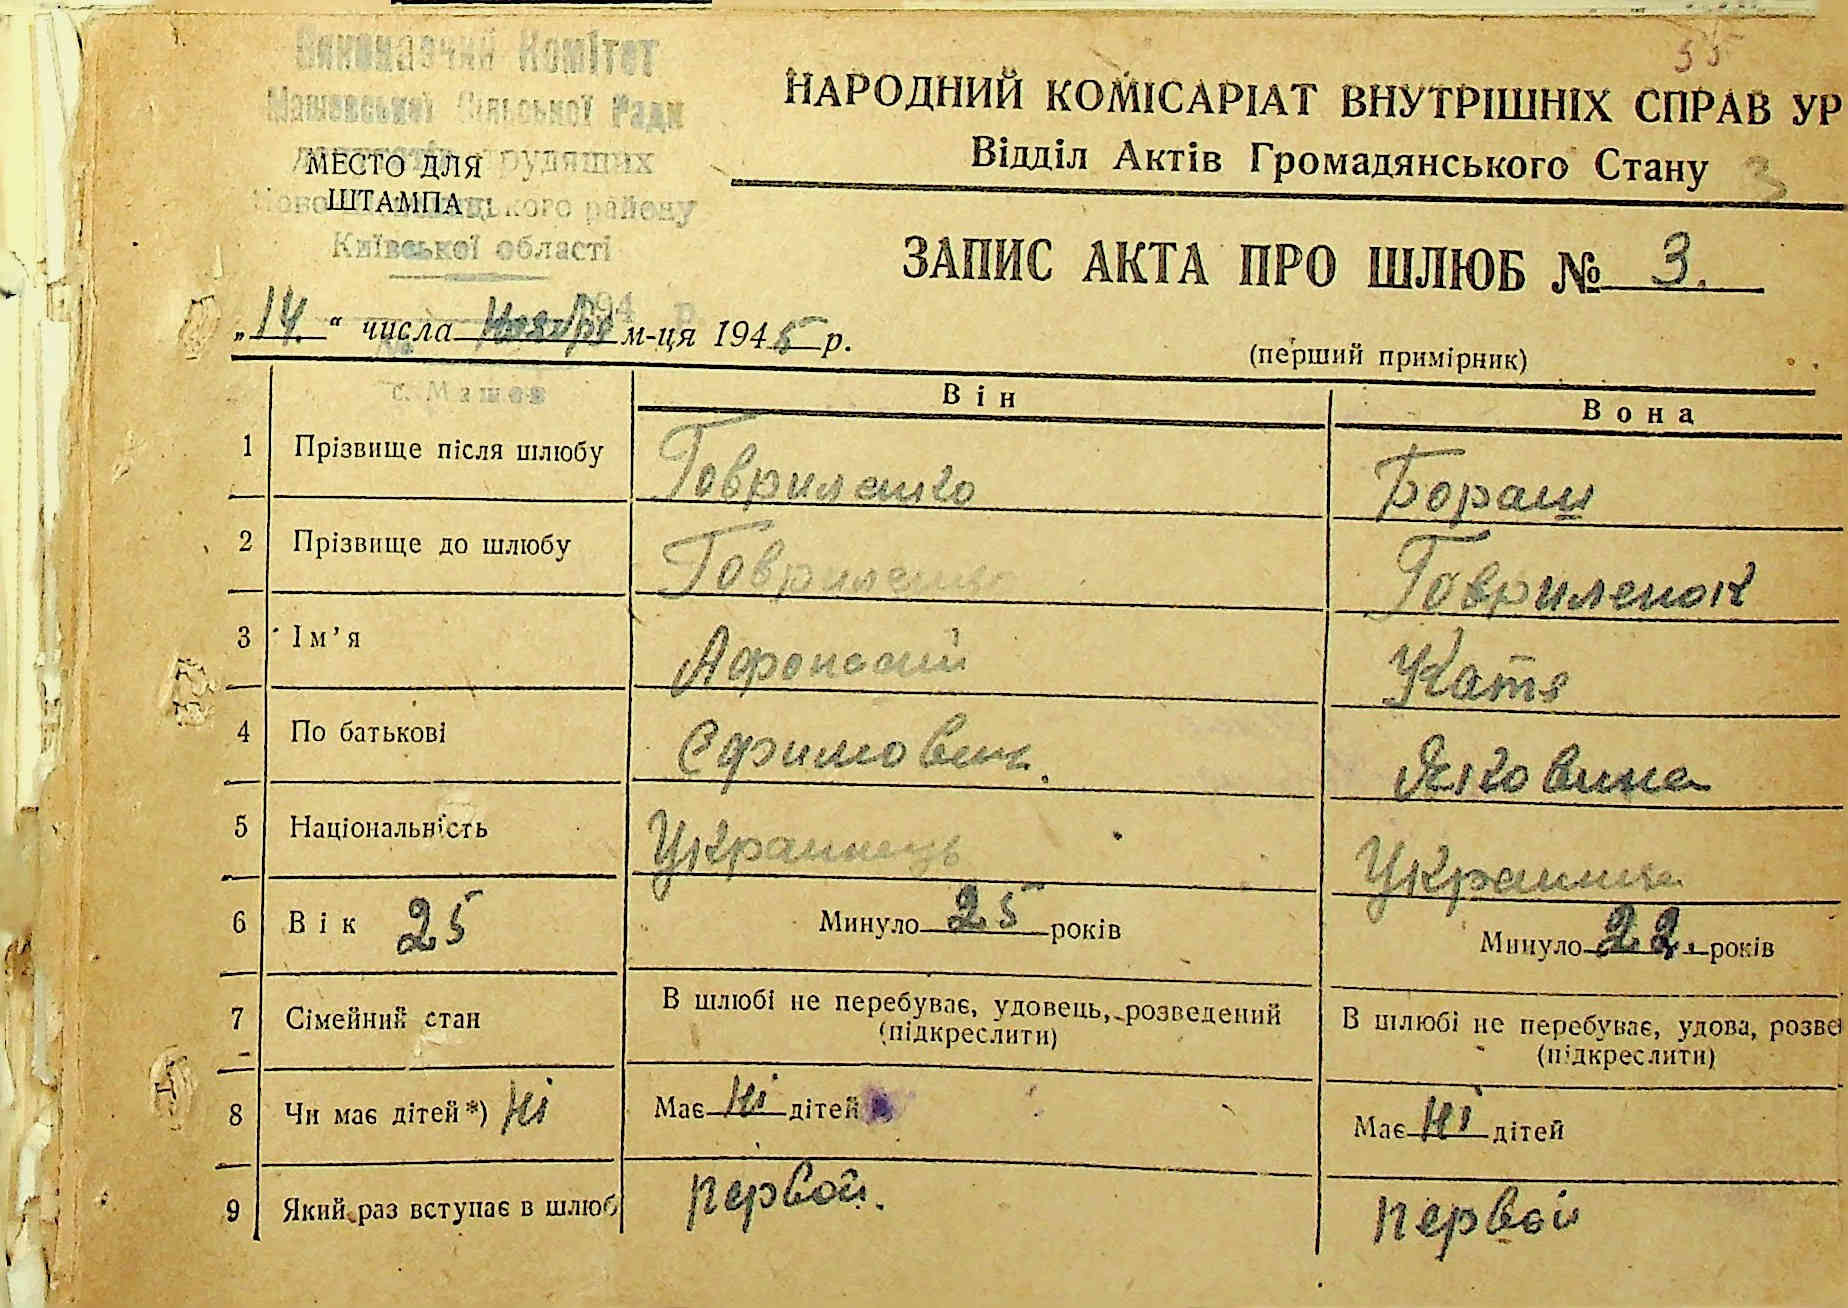 55
Виконавчий Комітет
Машевської Сільської Ради
депутатів трудящих
району
Київської області
194 р.
№
с. Машев
МЕСТО ДЛЯ
ШТАМПА
НАРОДНИЙ КОМІСАРІАТ ВНУТРІШНІХ СПРАВ УР
Відділ Актів Громадянського Стану 3
ЗАПИС АКТА ПРО ШЛЮБ № 3.
„14.“ числа Ноября м-ця 1945 р.
(перший примірник)
Він Вона
1 Прізвище після шлюбу Говриленко Бораш
2 Прізвище до шлюбу Говриленко Говриленок
3 Ім’я Афонасий Катя
4 По батькові Єфимович. Яковина
5 Національність Українець Українка
6 Вік 25 Минуло 25 років Минуло 22. років
7 Сімейний стан В шлюбі не перебуває, удовець, розведений (підкреслити) В шлюбі не перебуває, удова, розве (підкреслити)
8 Чи має дітей*) Ні Має Ні дітей Має Ні дітей
9 Який раз вступає в шлюб первой. первой